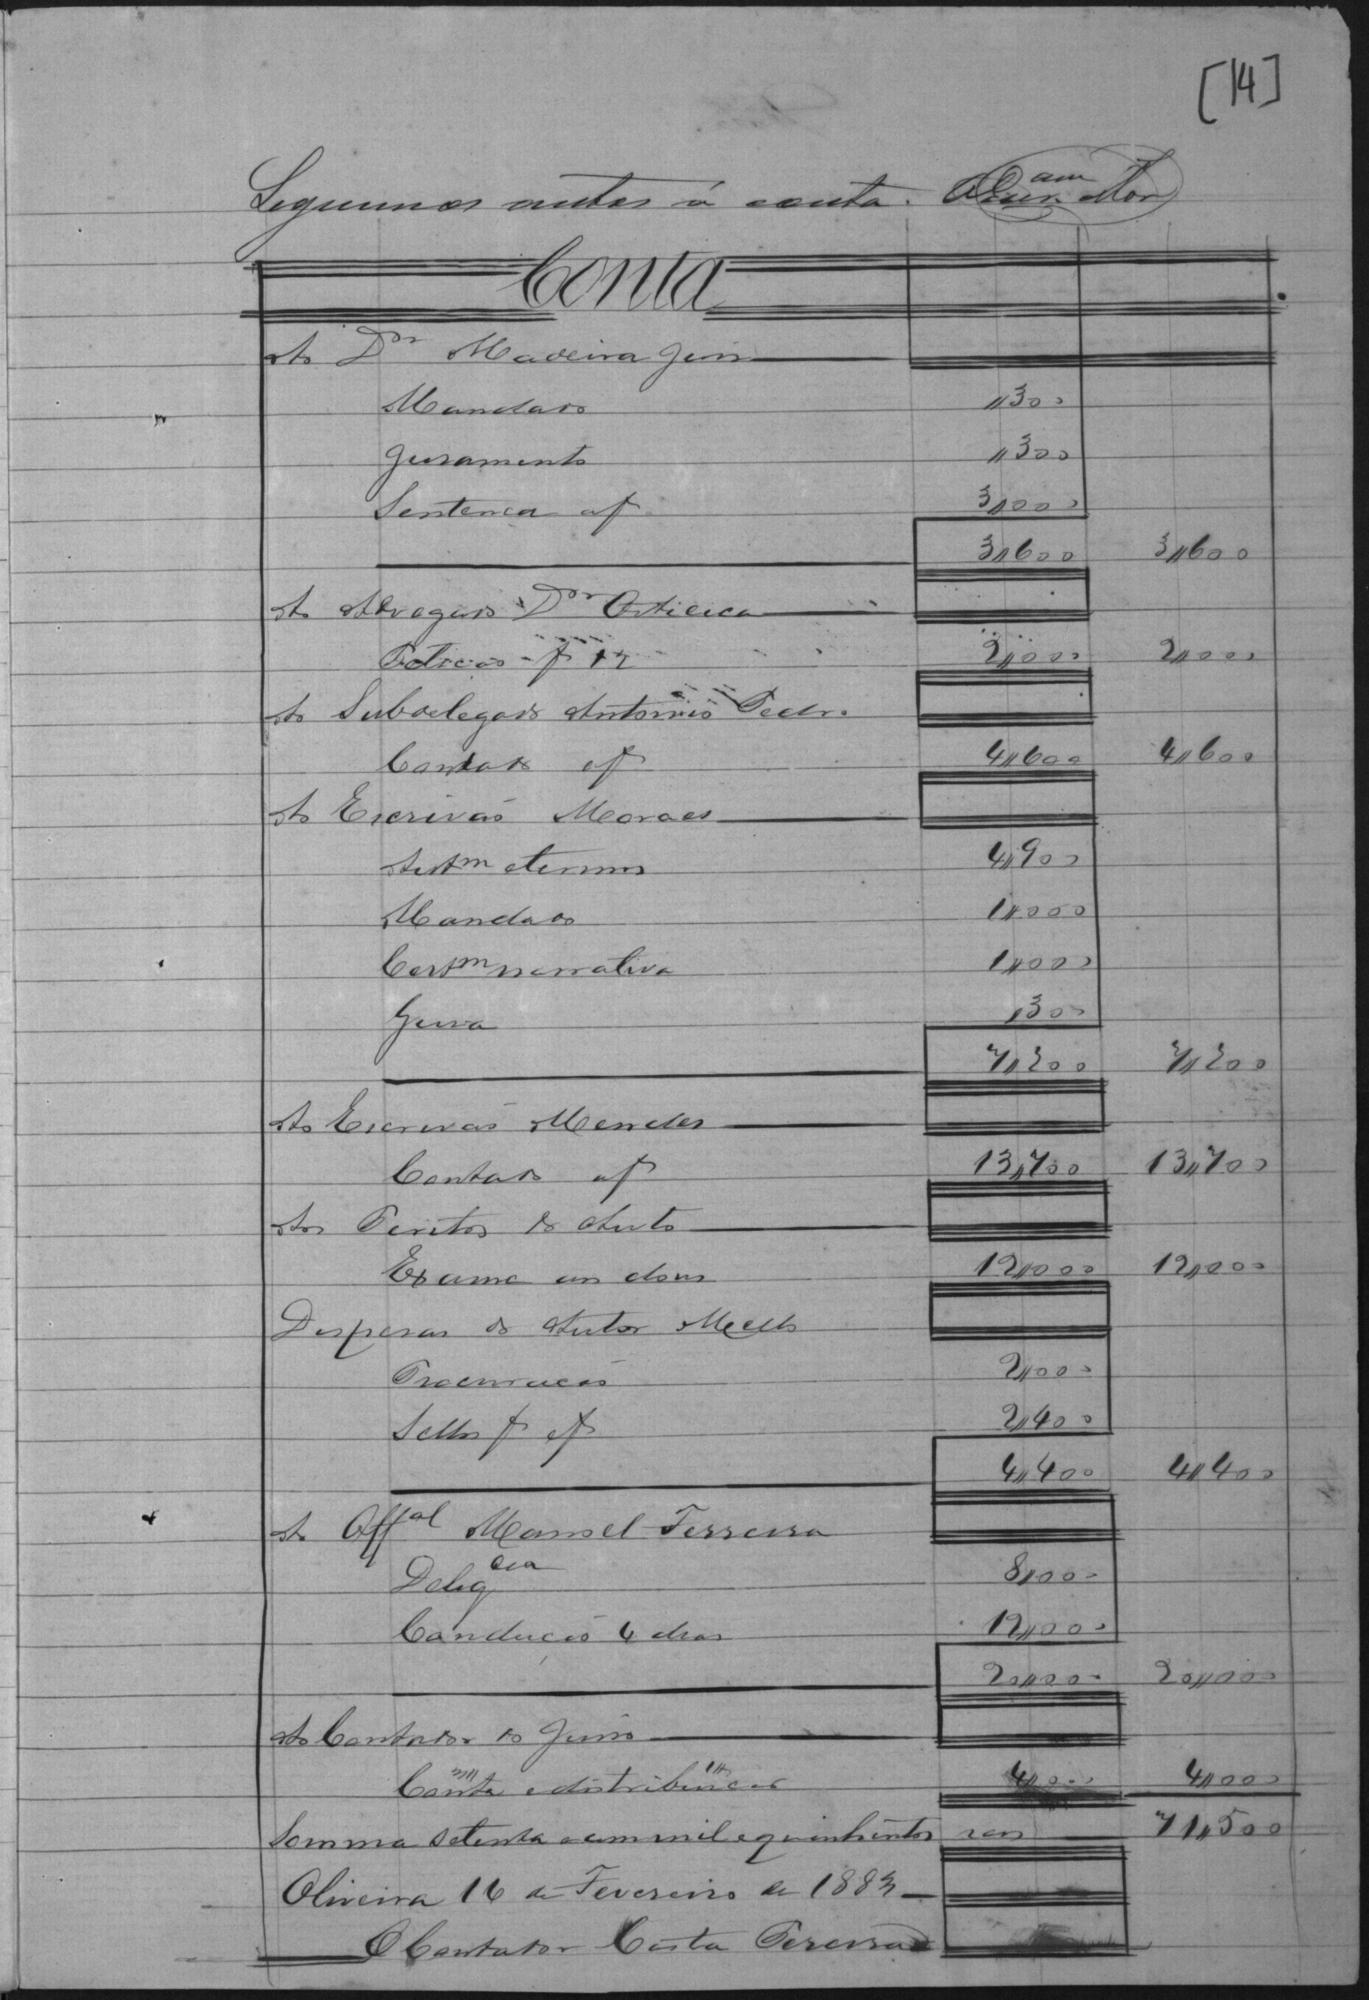 [14]
Seguem os autos á conta.
Conta
Ao Dor Madeira Juis
Mandado "300
Juramento "300
Sentença af 3"000
3"600 3"600
Ao Advogado Dor Oiticica
Petição f 12 2"000 2"000
Ao Subdelegado Antonio Pedro
Contado af 4"600 4"600
Ao Escrivão Moraes
Autm e termos 4"900
Mandado 1"000
Certm narrativa 1"000
Guia "300
7"200 7"200
Ao Escrivão Mendes
Contado af 13"700 13"700
Aos Peritos do Auto
Exame aos dous 12"000 12"000
Despesas do Autor Mello
Procuração 2"000
Sellos f e f 2"400
4"400 4"400
Ao Offal Manoel Ferreira
Deligcia 8"000
Condução 4 dias 12"000
20"000 20"000
Ao Contador do Juiso
Conta e distribuição 4"000 4"000
Somma setenta e um mil e quinhentos reis 71"500
Oliveira 16 de Fevereiro de 1883
O Contador Costa Pereira